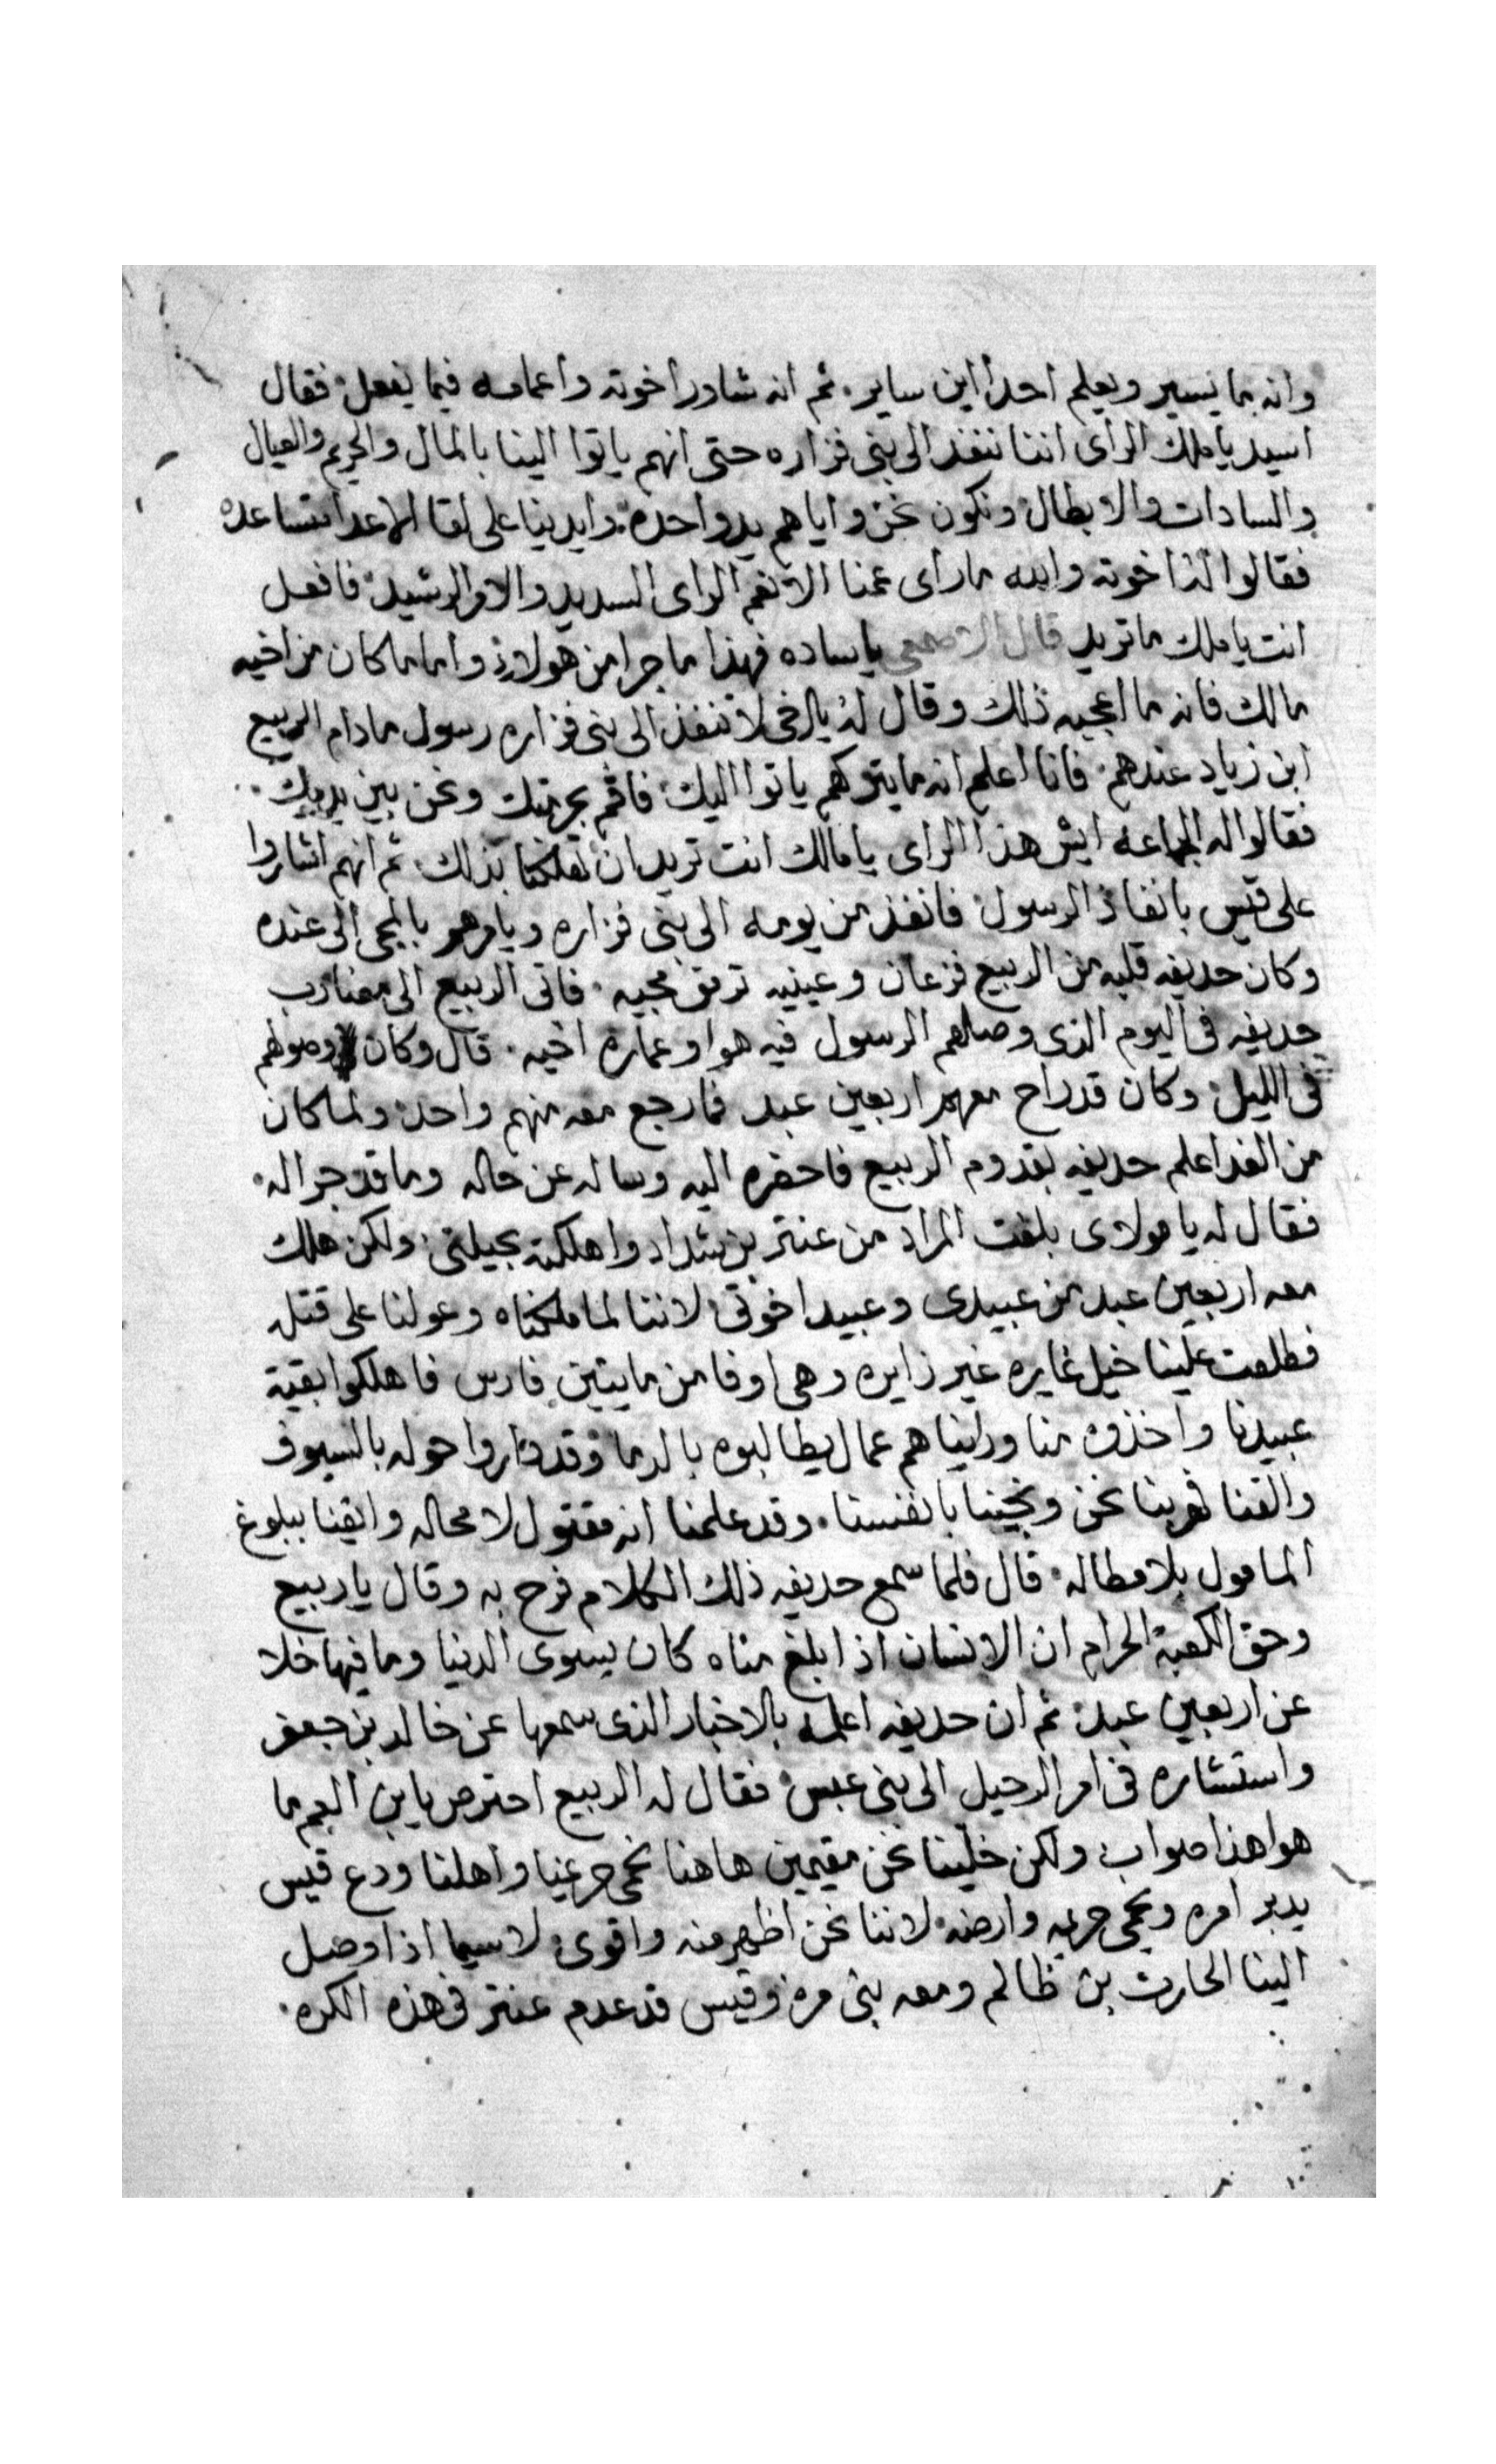 وانه بما يسير ويعلم احدا اين ساير. ثم انه شاور اخوته واعمامه فيما يفعل. فقال
اسيد يا ملك الراى اننا ننفذ الى بنى فزاره حتى انهم ياتوا الينا بالمال والحريم والعيال
والسادات والابطال ونكون نحن واياهم يد واحده. وايدينا على لقا الاعدا متساعده
فقالوا اخوته والله ما راى عمنا الا نعم الراى السديد والامر الرشيد. فافعل
انت يا ملك ما تريد قال الاصمعى يا ساده فهذا ما جرا من هولاى واما ما كان من اخيه
مالك فانه ما اعجبه ذلك وقال له يا اخى لا تنفذ الى بنى فزاره رسول مادام الربيع
ابن زياد عندهم. فانا اعلم انه ما يتركهم ياتوا اليك. فاقم بحرمتك ونحن بين يديك.
فقالوا له الجماعه ايش هذا الراى يا مالك انت تريد ان تهلكنا بذلك. ثم انهم اشاروا
على قيس بانفاذ الرسول فانفذ من يومه الى بنى فزاره ويامرهم بالمجى الى عنده
وكان حديفه قلبه من الربيع فزعان وعينيه ترمق مجيه. فاتى الربيع الى مضارب
حديفه فى اليوم الذى وصلهم الرسول فيه هوا وعماره اخيه. قال وكان وصولهم
فى الليل. وكان قد راح معهم اربعين عبد فما رجع معه منهم واحد. ولما كان
من الغد اعلم حديفه بقدوم الربيع فاحضره اليه وساله عن حاله وما قد جرا له.
فقال له يا مولاى بلغت المراد من عنتر بن شداد واهلكته بحيلتى. ولكن هلك
معه اربعين عبد من عبيدى وعبيد اخوتى لاننا لما ملكناه وعولنا على قتله
فطلعت علينا خيل غايره غير زايره وهى اوفا من مايتين فارس فاهلكوا بقية
عبيدنا واخذوه منا وراينا هم عمال يطالبوه بالدما وقد داروا حوله بالسيوف
والقنا فهربنا نحن ونجينا بانفسنا. وقد علمنا انه مقتول لا محاله وايقنا ببلوغ
المامول بلا مطاله. قال فلما سمع حديفه ذلك الكلام فرح به وقال يا ربيع
وحق الكعبة الحرام ان الانسان اذا بلغ مناه كان يسوى الدنيا وما فيها خلا
عن اربعين عبد. ثم ان حديفه اعلمه بالاخبار الذى سمعها عن خالد بن جعفر
واستشاره فى امر الرحيل الى بنى عبس. فقال له الربيع احترص يابن العم ما
هوا هذا صواب ولكن خلينا نحن مقيمين هاهنا نحمى حريمنا واهلنا ودع قيس
يدبر امره ويحمى حريمه وارضه. لاننا نحن اظهر منه واقوى. لاسيما اذا وصل
الينا الحارث بن ظالم ومعه بنى مره وقيس قد عدم عنتر فى هذه الكره.